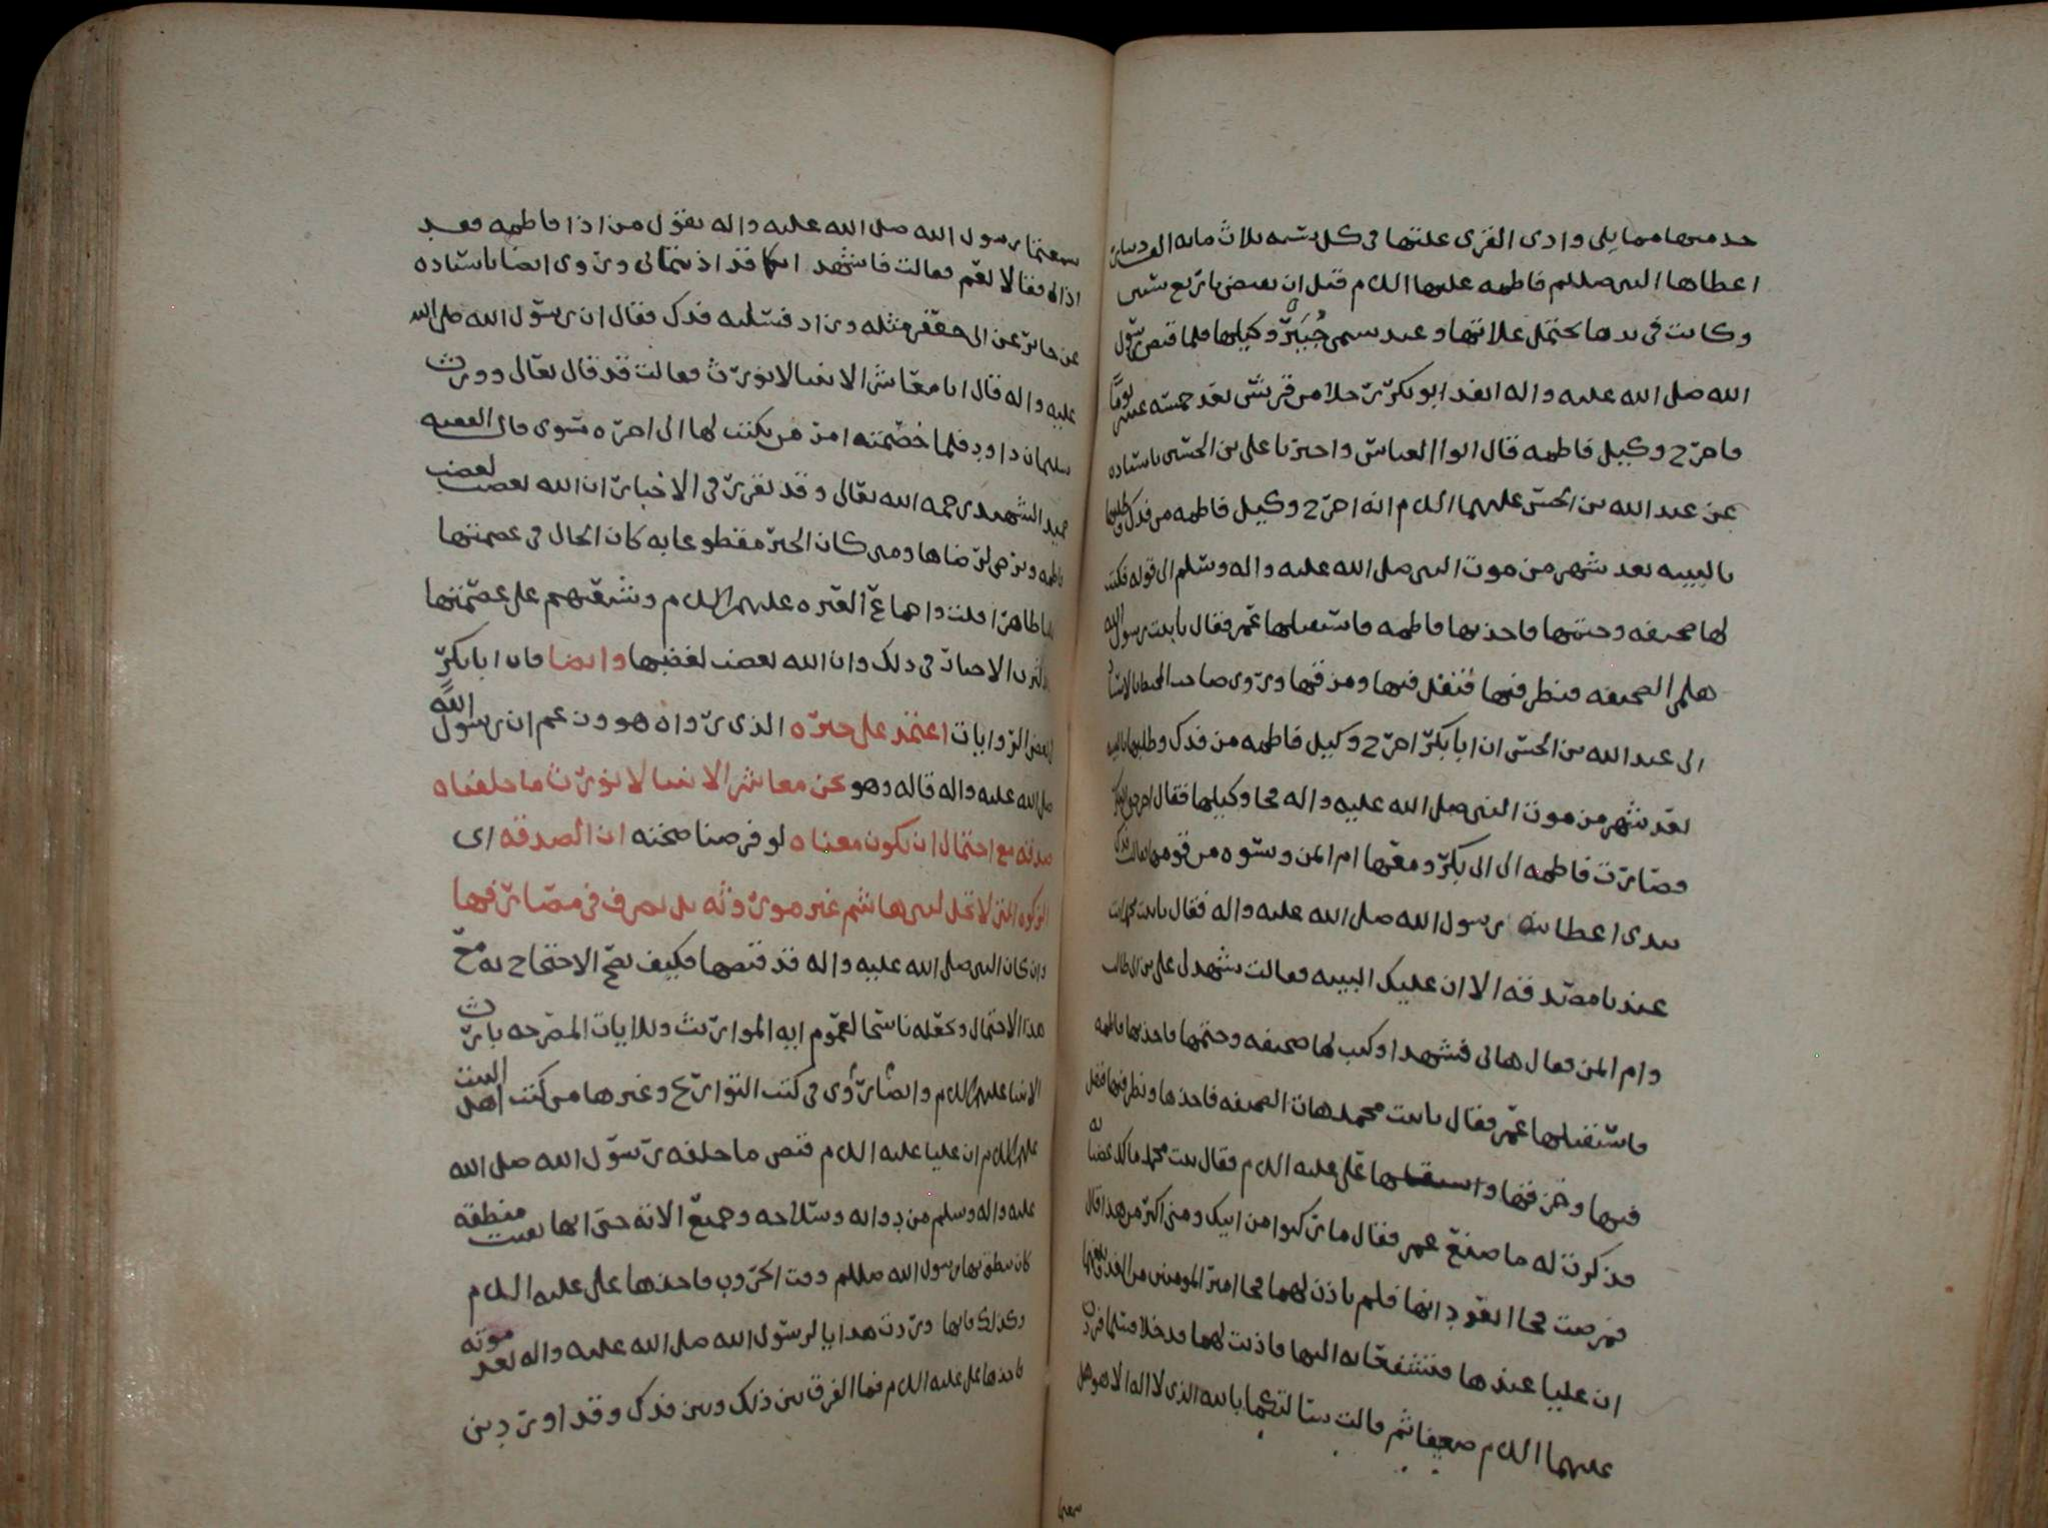 حد منها مما يلي وادي القرى غلتها في كل سنه ثلاث مايه الف دينار
اعطاها النبي صللم فاطمه عليها السلام قبل ان يقبض باربع سنين
وكانت في يدها تحتمل غلاتها وعبد يسمى جُبَير وكيلها فلما قبض رسول
الله صلى الله عليه واله انفد ابو بكر رجلا من قريش بعد خمسه عشر يومًا
فاخرج وكيل فاطمه قال ابوا العباس واخبرنا علي بن الحسين باسناده
عن عبد الله بن الحسن عليهما السلام انه اخرج وكيل فاطمه من فدك وطلبها
بالبينه بعد شهر من موت النبي صلى الله عليه واله وسلم الى قوله فكتب
لها صحيفه وختمها فاخذتها فاطمه فاستقبلها عمر فقال يا بنت رسول الله
هلمي الصحيفه فنظر فيها فتفل فيها ومزقها وروى صاحب المحيط بالاسناد
الى عبد الله بن الحسن ان ابا بكر اخرج وكيل فاطمه من فدك وطلبها بالبينه
بعد شهر من موت النبي صلى الله عليه واله فجا وكيلها فقال اخرجني ابو بكر
فصارت فاطمه الى ابي بكر ومعها ام ايمن ونسوه من قومها فقالت فدك
بيدي اعطانيه رسول الله صلى الله عليه واله فقال يا بنت محمد انت
عندنا مصدقه الا ان عليك البينه فقالت يشهد لي علي بن ابي طالب
وام ايمن فقال هاتي فشهدا وكتب لها صحيفه وختمها فاخذتها فاطمه
فاستقبلها عمر فقال يا بنت محمد هات الصحيفه فاخذها ونظر فيها فتفل
فيها وخرقها واستقبلها علي عليه السلام فقال يا بنت محمد مالك غضبا
فذكرت له ما صنع عمر فقال ما ركبوا من ابيك ومني اكبر من هذا قال
فمرضت فجاا يعودانها فلم ياذن لهما فجاا امير المومنين من الغد
ان عليا عندها فتشفعا به اليها فاذنت لهما فدخلا فسلما فردت
عليهما السلام ضعيفا ثم قالت سالتكما بالله الذي لا اله الا هو هل
سمعتما
سمعتما رسول الله صلى الله عليه واله يقول من اذا فاطمه فقد
اذاني فقالا نعم فقالت فاشهد انكما قد اذيتماني وروى ايضا باسناده
عن جابر عن ابي جعفر مثله وزاد فسئلته فدك فقال ان رسول الله صلى الله
عليه واله قال انا معاشر الانبيا لا نورث فقالت قد قال تعالى وورث
سليمان داود فلما خصمته امر من يكتب لها الى اخره سوى قال الفقيه
حميد الشهيد رحمه الله تعالى وقد تقرر في الاخبار ان الله يغضب لغضب
فاطمه ويرضى لرضاها ومتى كان الخبر مقطوعا به كان الحال في عصمتها
ايضا ظاهرا قلت واجماع العتره عليهم السلام وشيعتهم على عصمتها
الاخبار في ذلك وان الله يغضب لغضبها وايضا فان ابا بكر
بعض الروايات اعتمد على خبره الذي رواه هو وزعم ان رسول الله
صلى الله عليه واله قاله وهو نحن معاشر الانبيا لا نورث ما خلفناه
صدقه مع احتمال ان يكون معناه لو فرضنا صحته ان الصدقه اي
الزكوه التي لا تحل لبني هاشم غير موروثه بل تصرف في مصارفها
وان كان النبي صلى الله عليه واله قد قبضها فكيف يصح الاحتجاج به مع
هذا الاحتمال وجعله ناسخا لعموم ايه المواريث وللايات المصرحه بارث
الانبيا عليهم السلام وايضا روى في كتب التواريخ وغيرها من كتب اهل البيت
عليهم السلام ان عليا عليه السلام قبض ما خلفه رسول الله صلى الله
عليه واله وسلم من دوابه وسلاحه وجميع الاته حتى انها بقيت منطقه
كان ينطق بها رسول الله صللم وقت الحروب فاخذها علي عليه السلام
وكذلك فانها وردت هدايا لرسول الله صلى الله عليه واله بعد موته
فاخذها علي عليه السلام فما الفرق بين ذلك وبين فدك وقد اورد بن